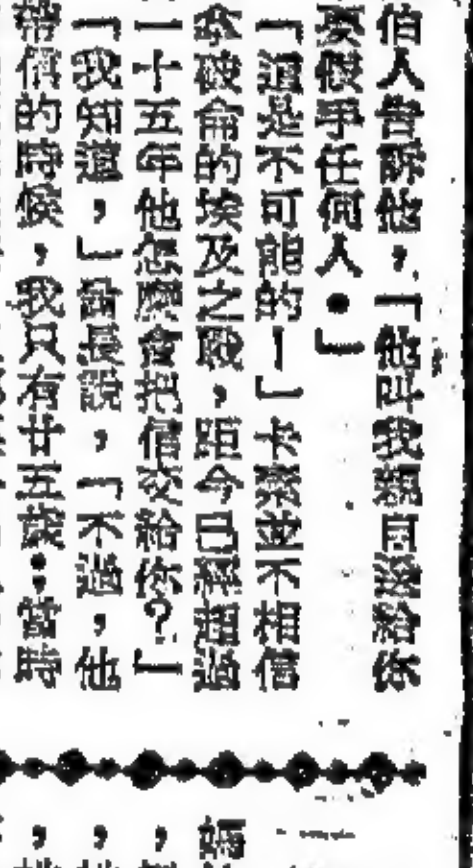 伯人告訴他，「他叫我親自送給你
要假手任何人。」
「這是不可能的！」卡索並不相信
拿破崙的埃及之戰，距今已經超過
一十五年他怎麼會把信交給你？」
「我知道，」酋長說，「不過，他
帶信的時候，我只有廿五歲；當時